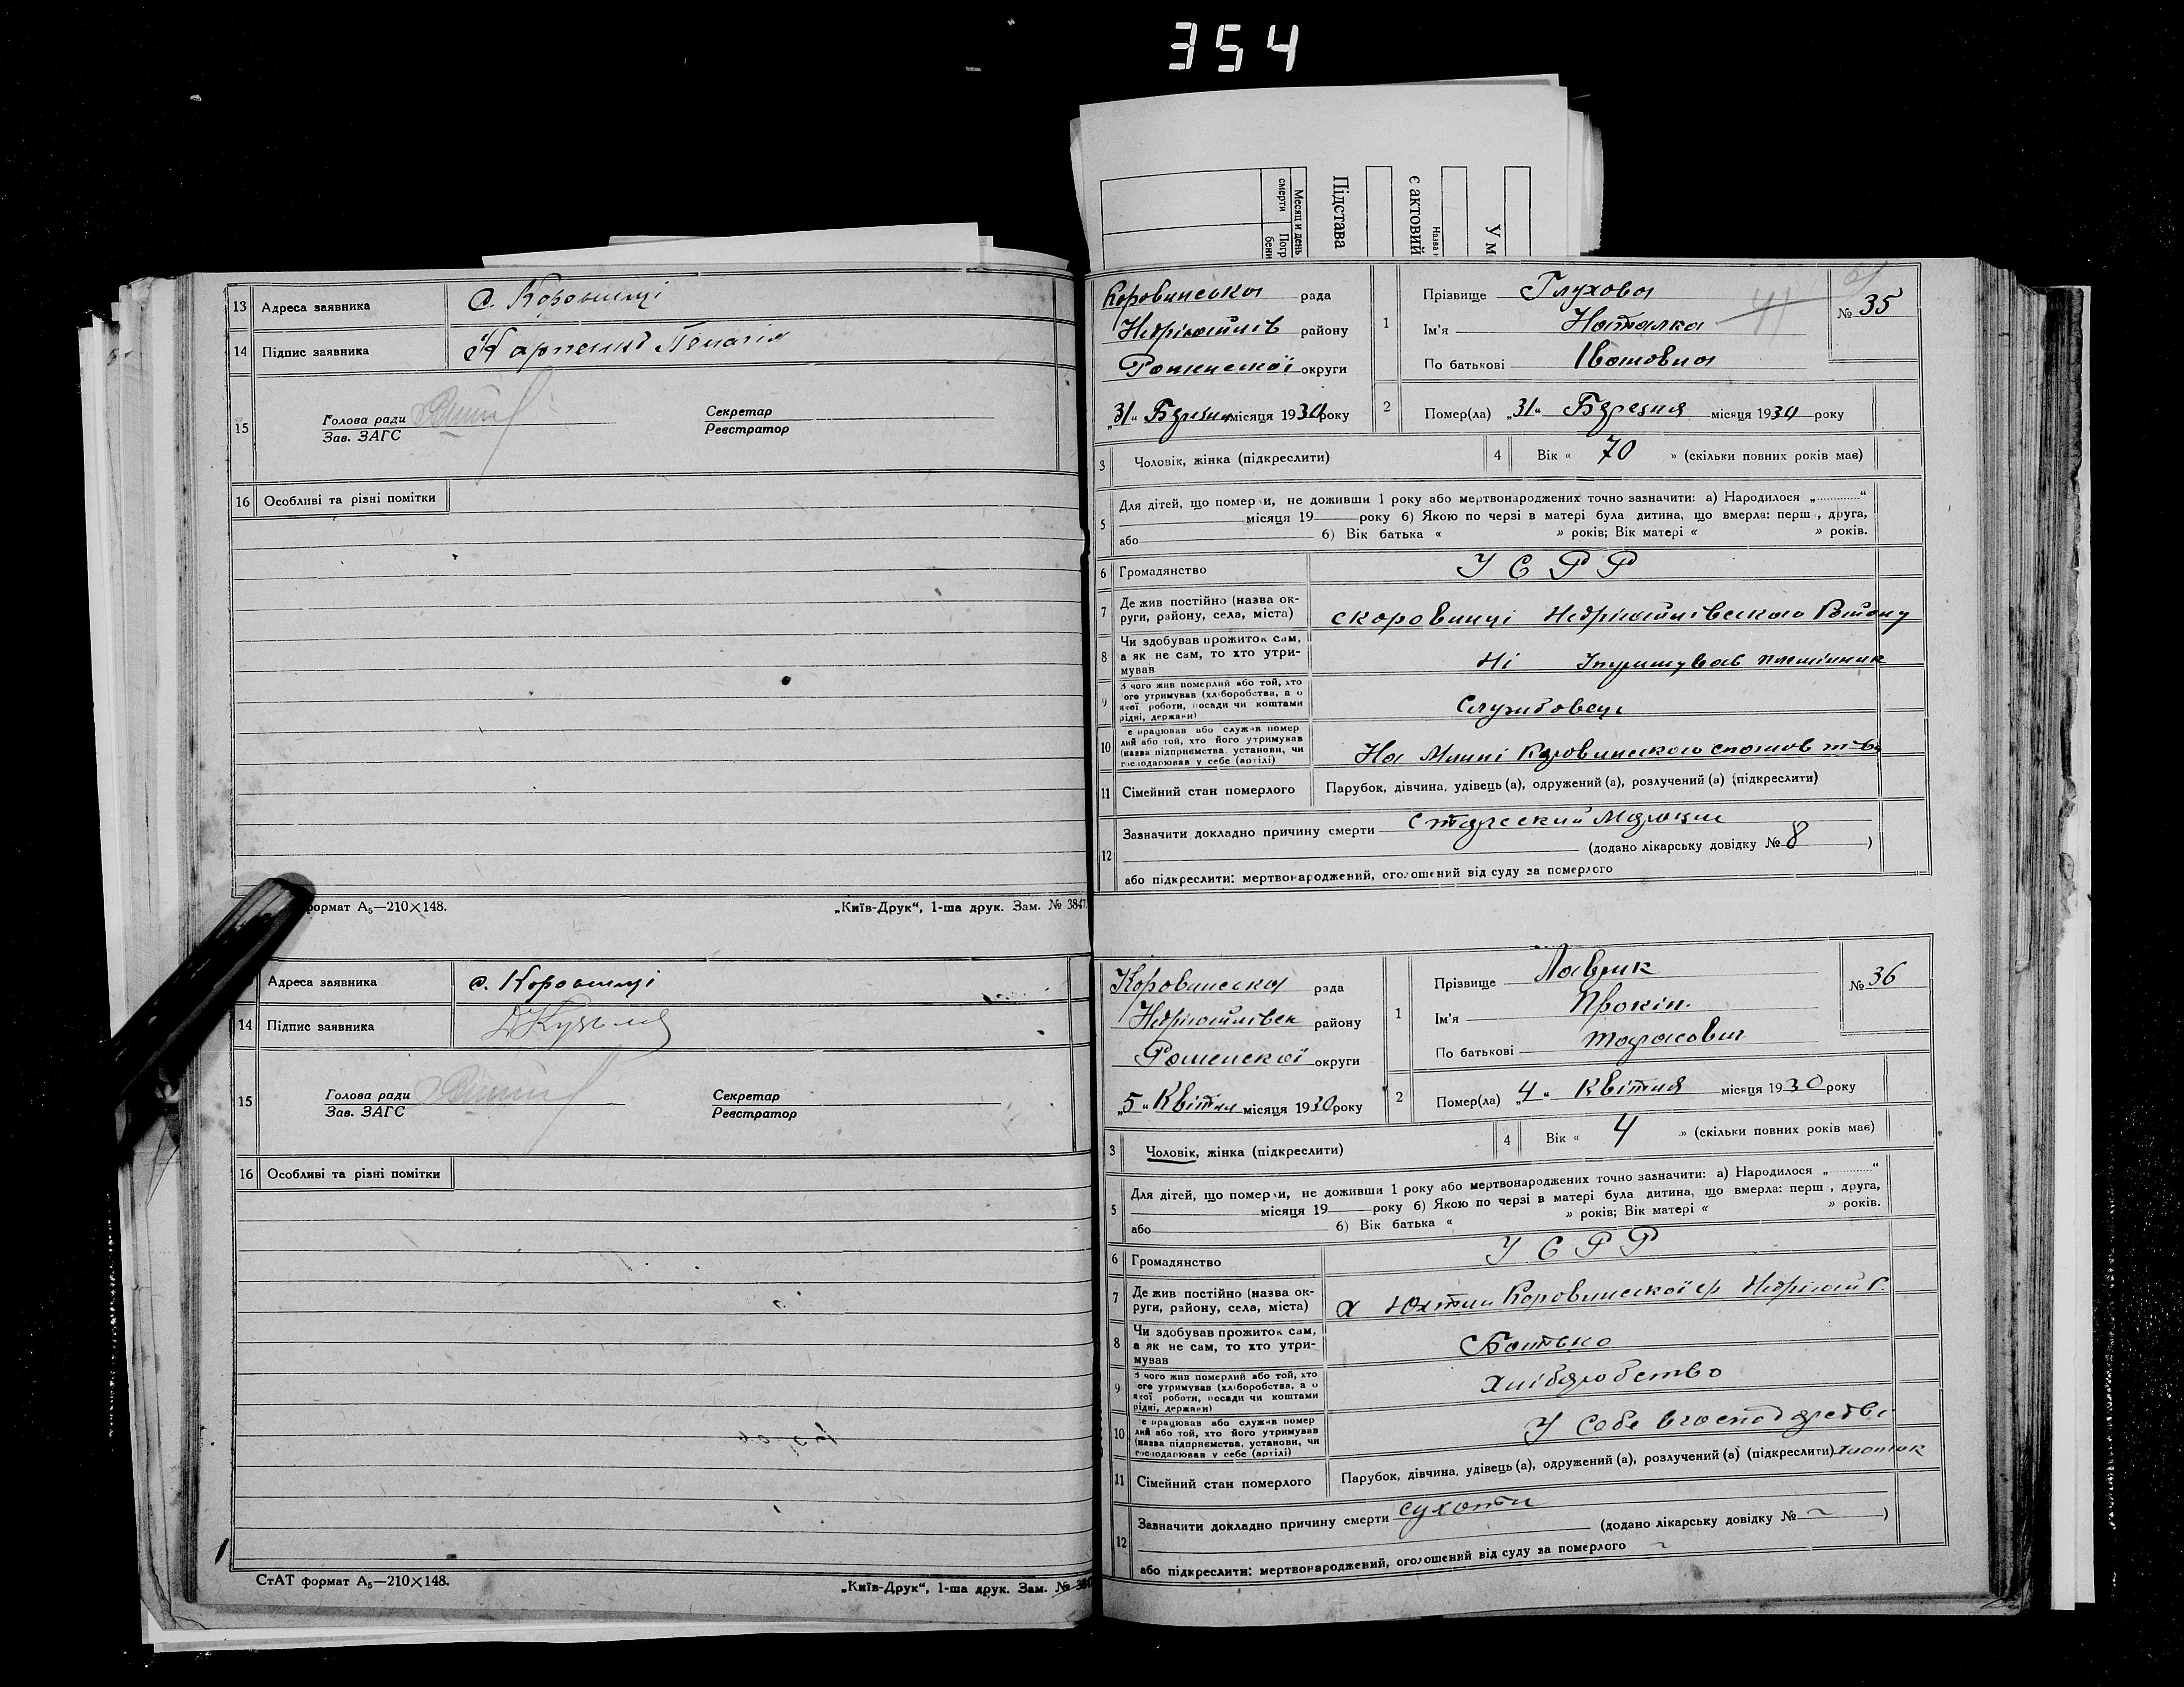 354
Підстава
є актовий
Назва
У м
Месяц и день
смерти
Погр
бени
13 Адреса заявника с. Коровинці
14 Підпис заявника
15 Голова ради Секретар
Зав. ЗАГС Реєстратор
16 Особливі та різні помітки
формат А5—210×148. „Київ-Друк“, 1-ша друк. Зам. № 3847.
Адреса заявника с. Коровинці
14 Підпис заявника
15 Голова ради Секретар
Зав. ЗАГС Реєстратор
16 Особливі та різні помітки
СтАТ формат А5—210×148. „Київ-Друк“, 1-ша друк. Зам. №
Коровинська рада
Недригайлів району
Роменської округи
„31“ Березня місяця 1930 року
1 Прізвище Глухова
Ім'я Наталка 41
По батькові Івановна
№ 35
2 Помер(ла) „31“ Березня місяця 1930 року
3 Чоловік, жінка (підкреслити) 4 Вік « 70 » (скільки повних років має)
5 Для дітей, що померли, не доживши 1 року або мертвонароджених точно зазначити: а) Народилося „............“
місяця 19 року б) Якою по черзі в матері була дитина, що вмерла: перш , друга,
або б) Вік батька « » років; Вік матері « » років.
6 Громадянство УСРР
7 Де жив постійно (назва округи, району, села, міста) с Коровинці Недригайлівського Району
8 Чи здобував прожиток сам, а як не сам, то хто утримував Ні племінник
9 З чого жив померлий або той, хто його утримував (хліборобства, а о якої роботи, посади чи коштами рідні, держави) Службовець
10 е працював або служив помер лий або той, хто його утримував (назва підприємства, установи, чи господарював у себе (артілі) На Млині Коровинського спожив т-ва
11 Сімейний стан померлого Парубок, дівчина, удівець (а), одружений (а), розлучений (а) (підкреслити)
12 Зазначити докладно причину смерти старческий
(додано лікарську довідку № 8 )
або підкреслити: мертвонароджений, оголошений від суду за померлого
Коровинська рада
Недригайлівськ району
Роменської округи
„5“ Квітня місяця 1930 року
1 Прізвище Лаврик
Ім'я Прокіп.
По батькові Тарасович
№ 36
2 Помер(ла) „4“ Квітня місяця 1930 року
3 Чоловік, жінка (підкреслити) 4 Вік « 4 » (скільки повних років має)
5 Для дітей, що померли, не доживши 1 року або мертвонароджених точно зазначити: а) Народилося „............“
місяця 19 року б) Якою по черзі в матері була дитина, що вмерла: перш , друга,
або б) Вік батька « » років; Вік матері « » років.
6 Громадянство УСРР
7 Де жив постійно (назва округи, району, села, міста) х Коровинської с/р Недригай Р.
8 Чи здобував прожиток сам, а як не сам, то хто утримував Батько
9 З чого жив померлий або той, хто його утримував (хліборобства, а о якої роботи, посади чи коштами рідні, держави) Хліборобство
10 е працював або служив помер лий або той, хто його утримував (назва підприємства, установи, чи господарював у себе (артілі) У себе в господарстві
11 Сімейний стан померлого Парубок, дівчина, удівець (а), одружений (а), розлучений (а) (підкреслити) хлопчик
12 Зазначити докладно причину смерти сухоти
(додано лікарську довідку № ~ )
або підкреслити: мертвонароджений, оголошений від суду за померлого ~